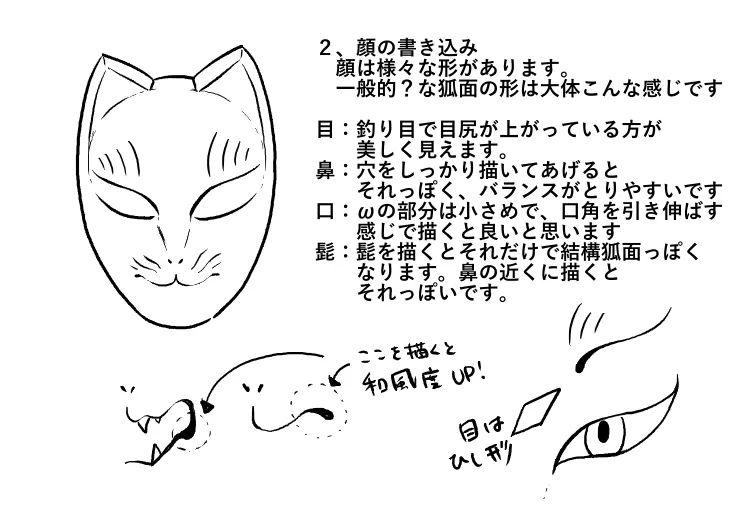 2、顔の書き込み
顔は様々な形があります。
一般的？な狐面の形は大体こんな感じです
目：釣り目で目尻が上がっている方が
美しく見えます。
鼻：穴をしっかり描いてあげると
それっぽく、バランスがとりやすいです
口：ωの部分は小さめで、口角を引き伸ばす
感じで描くと良いと思います
髭：髭を描くとそれだけで結構狐面っぽく
なります。鼻の近くに描くと
それっぽいです。
ここを描くと
和風度UP!
目は
ひし形